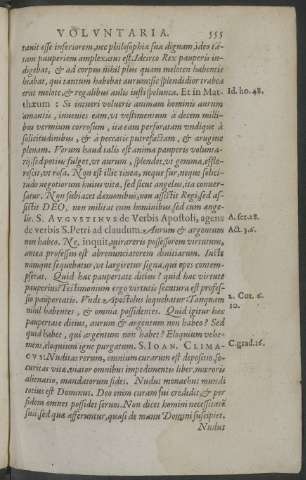 VOLVNTARIA. 555
tauit esse inferiorem, nec philosophia sua dignam, ideo
tam pauperiem amplexatus est. Idcirco Rex pauperis in-
digebat, & ad corpus nihil plus quam molem habentis
hiabat, qui tantum habebat auruosse splendidior traboa
erat molote, & regalibus aulis iustis poluta. Et in Mat- Id. ho. 48.
thæum : Si intueri volueris animam hominis aurum
amantis, inuenies eam, vt vestimentum à decem milli-
bus vermium corrosum, ita eam perforatam vndique à
solicitudinibus, & à peccatis putrefactam, & ærugine
plenam. Verum haud talis est anima pauperis volunta-
rij, sed potius fulget, vt aurum, splendet, vt gemma, efflo-
rescit, vt rosa. Non est illic tinea, neque fur, neque solici-
tudo negotiorum huius vita, sed sicut angelus, ita conuer-
satur. Non subiacet dæmonibus, non assistit Regi, sed as-
sistit DEO, non militat cum hominibus, sed cum ange-
lis. S. AVGVSTINVS de Verbis Apostoli, agens A. ser. 28.
de verbis S. Petri ad claudum, Aurum & argentum Act. 3. 6.
non habeo. Ne, inquit, mirareris possessorem virtutum,
antea professus est abrenunciatorem diuitiarum.
nunquam sequebatur, vt largiretur signa, qui opes contem-
pserat. Quid hac paupertate ditius? quid hac virtute
pauperius? Testimonium ergo virtutis secutura est profes-
sio paupertatis. Vnde Apostolus loquebatur: Tanquam 2. Cor. 6.
nihil habentes, & omnia possidentes. Quid igitur hac 10.
paupertate ditius, aurum & argentum non habeo? Sed
quid habet, qui argentum non habet? Eloquium vehe-
mens, eloquium igne purgatum. S. IOAN. CLIMA- C. grad. 16.
CVS: Nuditas rerum, omnium curarum est depositio, se-
curitas vitæ, viator omnibus impedimentis liber, mœroris
alienatio, mandatorum fides. Nudus monachus mundi
totius est Dominus. Deo enim curam sui credidit, & per
fidem omnes possidet seruos. Non dicet homini necessitatẽ
suam, sed quæ afferuntur, quasi de manu Domini suscipiet.
Nudus